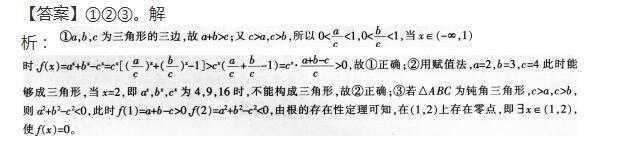 【答案】①②③。解
析：①a,b,c 为三角形的三边,故 a+b>c;又 c>a,c>b,所以 0<a/c<1,0<b/c<1,当 x∈(-∞,1)
时,f(x)=aˣ+bˣ-cˣ=cˣ[(a/c)ˣ+(b/c)ˣ-1]>cˣ(a/c+b/c-1)=cˣ·(a+b-c)/c>0,故①正确;②用赋值法,a=2,b=3,c=4 此时能
够成三角形,当 x=2,即 aˣ,bˣ,cˣ 为 4,9,16 时,不能构成三角形,故②正确;③若△ABC 为钝角三角形,c>a,c>b,
则 a²+b²-c²<0,此时 f(1)=a+b-c>0,f(2)=a²+b²-c²<0,由根的存在性定理可知,在(1,2)上存在零点,即∃x∈(1,2),
使 f(x)=0。